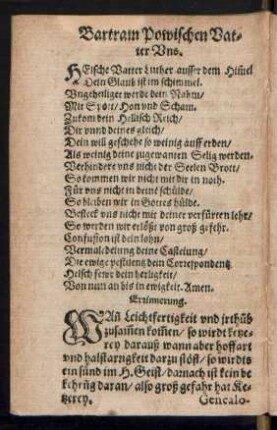 Bartram Powischen Vat-
ter Vns.
HElsche Vatter Luther ausser dem Him̃el
Dein Glauß ist im schimmel.
Vngeheiliget werde dein Nahm/
Mit Spott/ Hon vnd Scham.
Zukom dein Hellisch Reich/
Dir vnnd deines gleich/
Dein will geschehe so weinig auff erden/
Als weinig deine zugewanten Selig werden.
Verhindere vns nicht der Seelen Brott/
So kommen wir nicht mit dir in noth.
Für vns nicht in deine schülde/
So bleiben wir in Gottes hülde.
Befleck vns nicht mit deiner verfürten lehr/
So werden wir erlößt von groß gefehr.
Confusion ist dein lohn/
Vermaledeiung deine Casteiung/
Die ewige pestilentz dein Correspondentz
Helsch fewr dein herligkeit/
Von nun an bis in ewigkeit. Amen.
Erinnerung.
WAn̄ Leichtfertigkeit vnd jrthüm̄
zusam̄en kom̄en/ so wirdt ketze-
rey darauß wann aber hoffart
vnd halstarrigkeit darzu stöst/ so wirdts
ein sünd im H. Geist/ darnach ist kein be
kehrũg daran/ also groß gefahr hat Ke-
tzerey. Genealo-